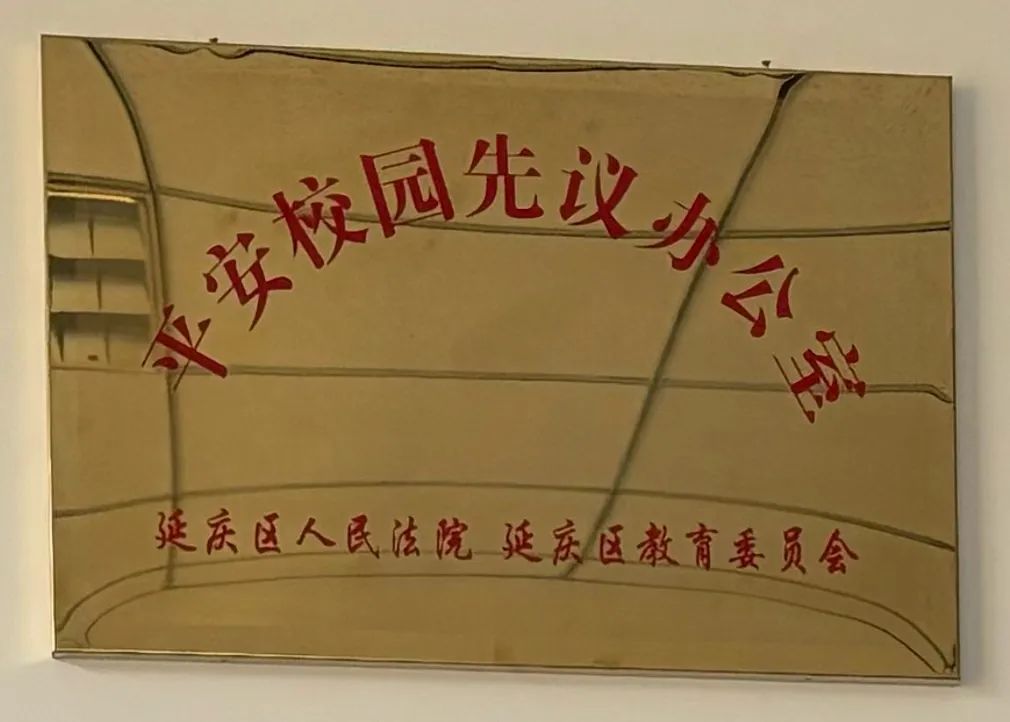 平安校园先议办公室
延庆区人民法院 延庆区教育委员会